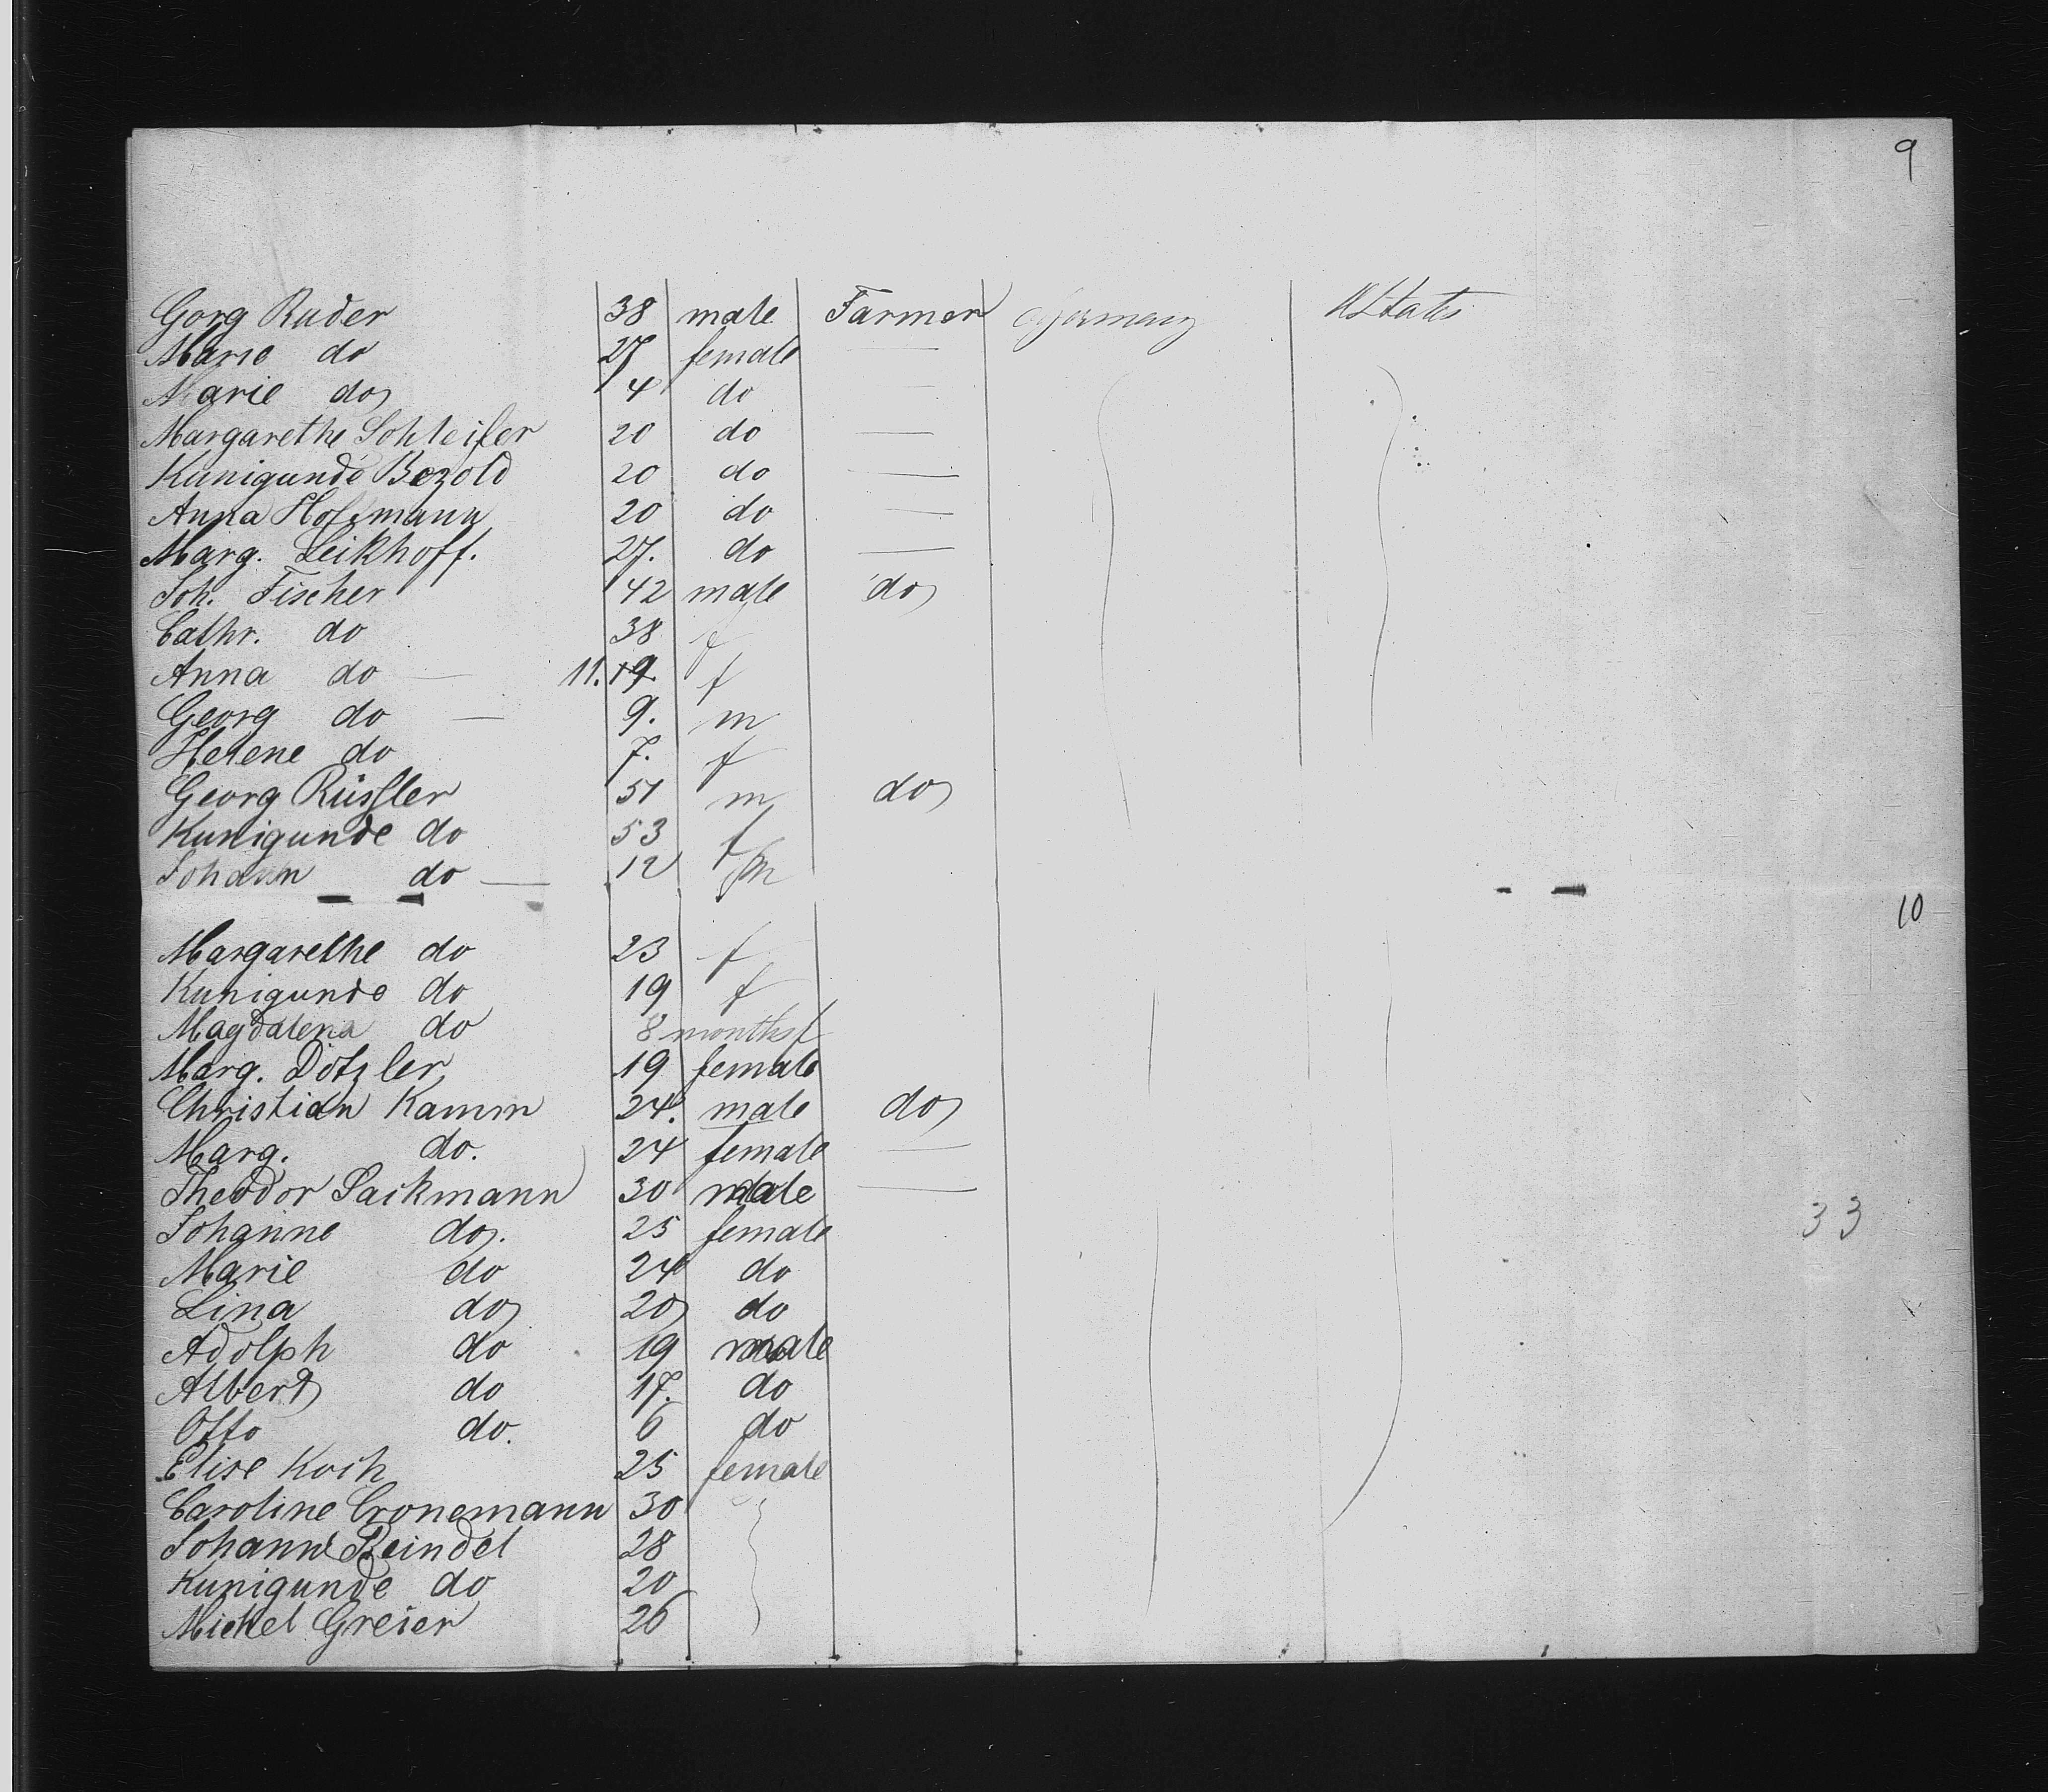 9
Gorg Ruder 38 male Farmer Germany U States
Marie do 27 female —
Marie do 4 do —
Margarethe Schleifer 20 do —
Kunigunde Bezold 20 do —
Anna Hoffmann 20 do —
Marg. Leikhoff. 27. do —
Joh. Fischer 42 male do
Cathr. do 38 f
Anna do — 11. 19. f
Georg do — 9. m
Helene do 7. f
Georg Rüssler 51 m do
Kunigunde do 53 f
Johann do — 12 m
10
Margarethe do 23 f
Kunigunde do 19 f
Magdalena do 8 months f
Marg. Dötzler 19 female
Christian Kamm 24. male do
Marg. do. 24 female —
Theodor Sackmann 30 male —
33
Johanne do. 25 female
Marie do 24 do
Lina do 20 do
Adolph do 19 male
Albert do 17. do
Otto do. 6 do
Elise Koch 25 female
Caroline Cronemann 30
Johann Beindel 28
Kunigunde do 20
Michel Greier 26